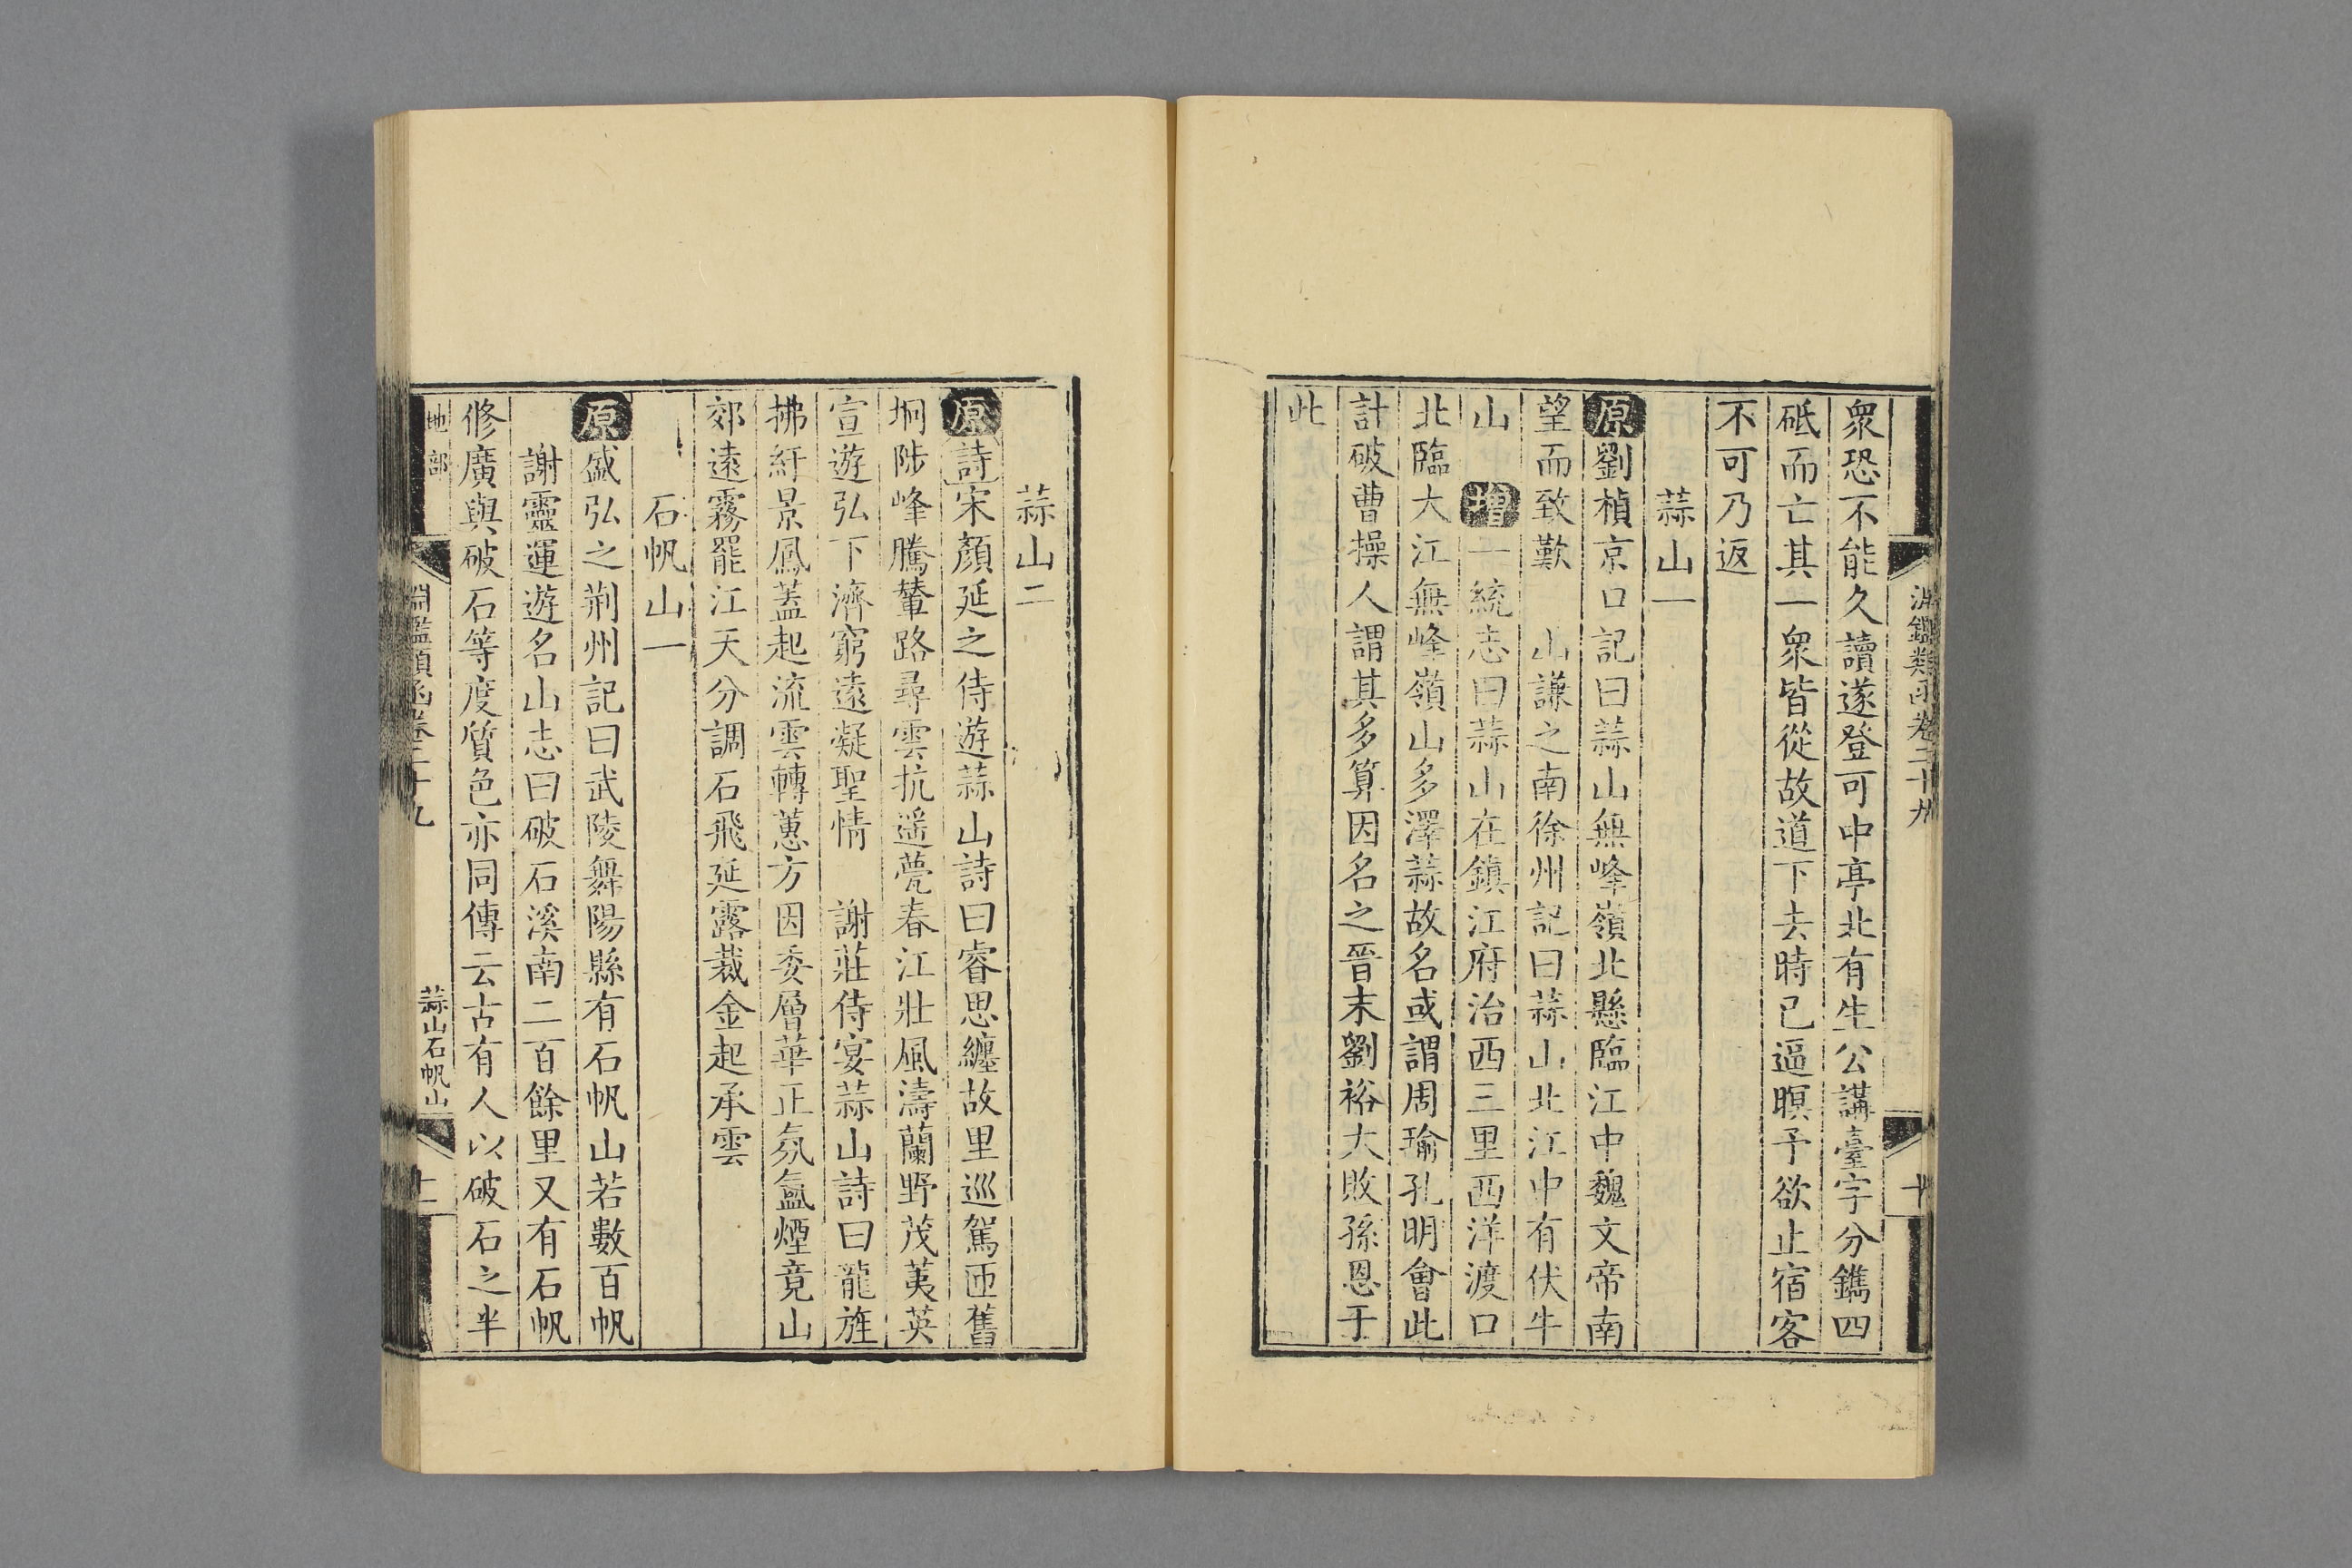 淵鑑類函卷二十九
十
衆恐不能久讀遂登可中亭北有生公講臺字分鐫四
砥而亡其一衆皆從故道下去時已逼暝予欲止宿客
不可乃返
蒜山一
原劉楨京口記曰蒜山無峰嶺北懸臨江中魏文帝南
望而致歎 山謙之南徐州記曰蒜山北江中有伏牛
山 增一統志曰蒜山在鎮江府治西三里西洋渡口
北臨大江無峰嶺山多澤蒜故名或謂周瑜孔明會此
計破曹操人謂其多算因名之晉末劉裕大敗孫恩于
此
蒜山二
原詩宋顏延之侍遊蒜山詩曰睿思纏故里巡駕匝舊
坰陟峰騰輦路尋雲抗遥甍春江壯風濤蘭野茂荑英
宣遊弘下濟窮遠凝聖情 謝莊侍宴蒜山詩曰龍旌
拂紆景鳳蓋起流雲轉蕙方因委層華正氛氳煙竟山
郊遠霧罷江天分調石飛延露裁金起承雲
石帆山一
原盛弘之荆州記曰武陵舞陽縣有石帆山若數百帆
謝靈運遊名山志曰破石溪南二百餘里又有石帆
修廣與破石等度質色亦同傳云古有人以破石之半
地部
淵鑑類函卷二十九
蒜山石帆山
十一